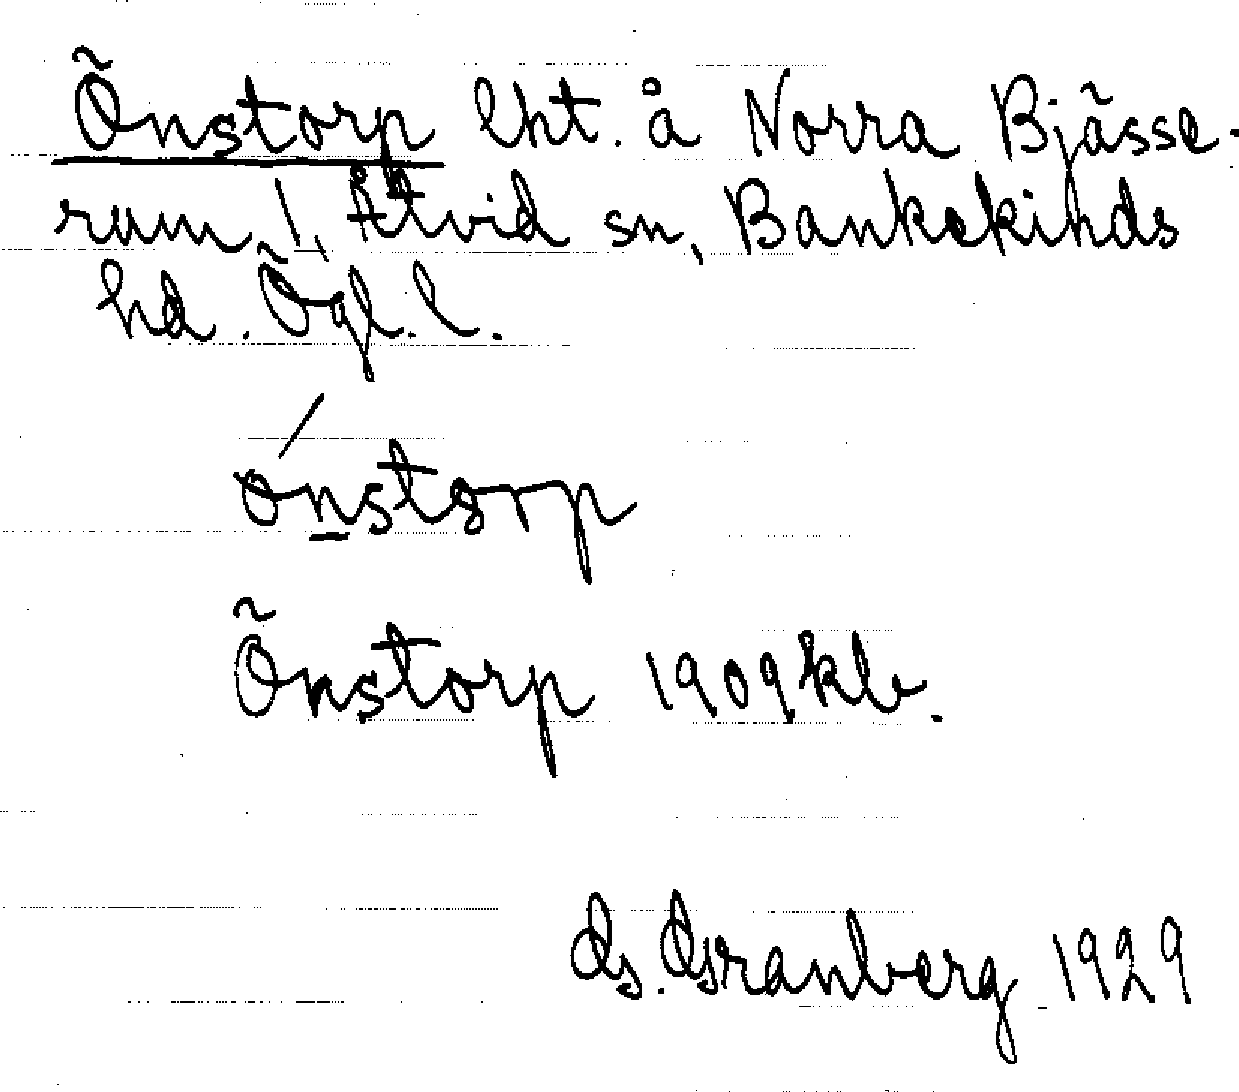 Önstorp lht. å Norra Bjässe-
rum, Åtvid sn, Bankekinds
hd. Ögl. l.
önstorp
Önstorp 1909 kb.
G. Granberg 1929